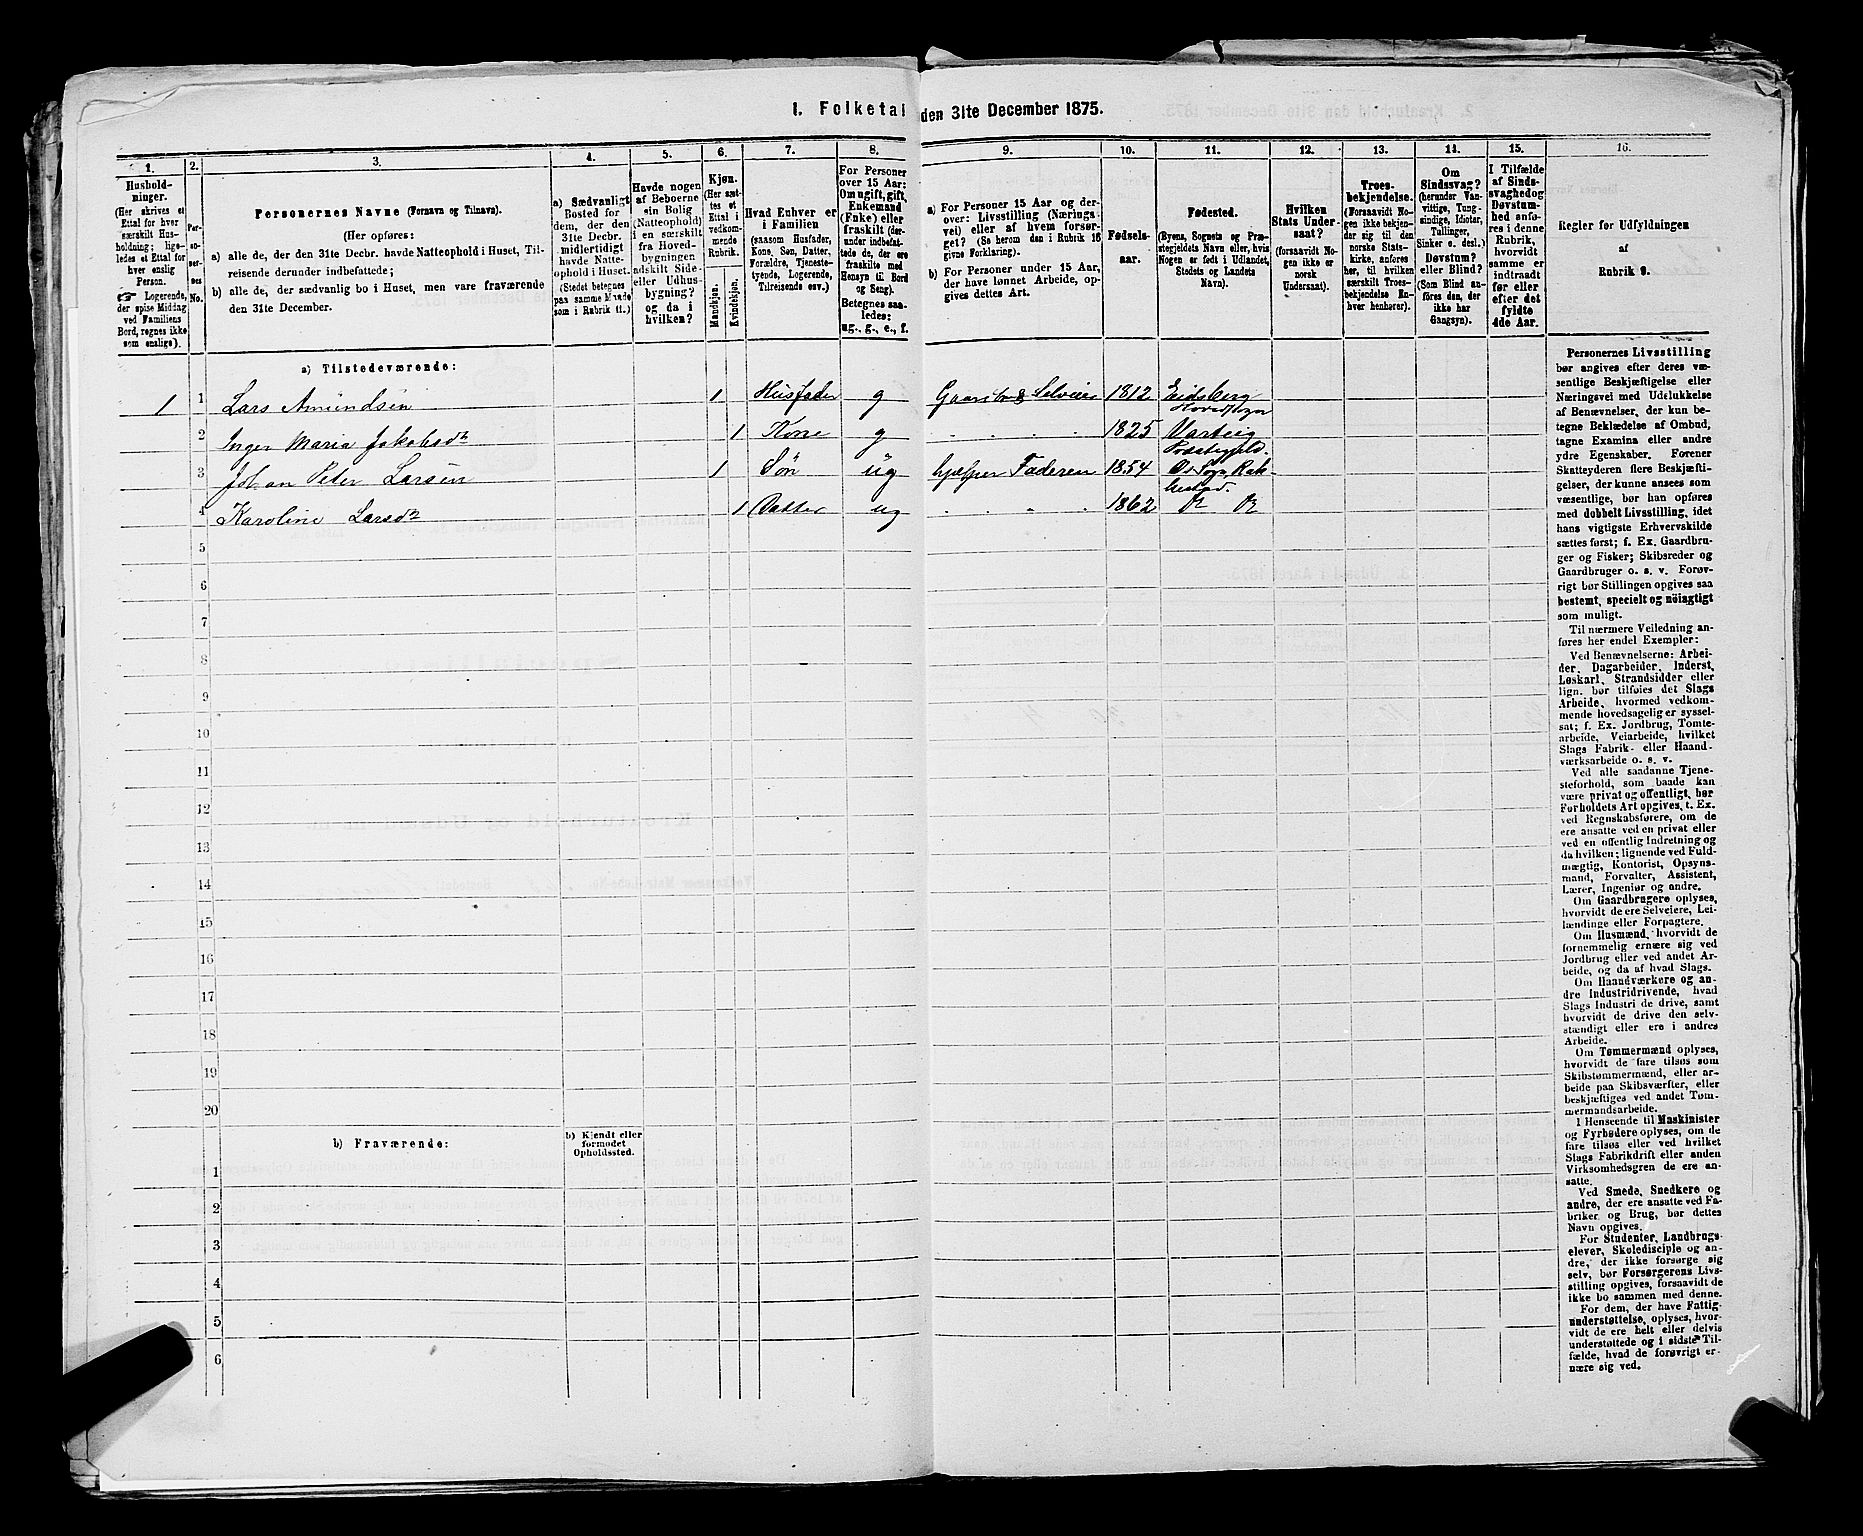 I. Folketal den 31te December 1875.
1. 2. 3. 4. 5. 6. 7. 8. 9. 10. 11. 12. 13. 14. 15. 16.
Hushold-
ninger.
(Her skrives et
Ettal for hver
særskilt Hus-
holdning; lige-
ledes et Ettal for
hver enslig
Person.
☞ Logerende,
der spise Middag
ved Familiens
Bord, regnes ikke
som enslige).
Per-
so-
ner-
nes
No.
Personernes Navne (Fornavn og Tilnavn).
(Her opføres:
a) alle de, der den 31te Decbr. havde Natteophold i Huset, Til-
reisende derunder indbefattede;
b) alle de, der sædvanlig bo i Huset, men vare fraværende
den 31te December.
a) Sædvanligt
Bosted for
dem, der den
31te Decbr.
midlertidigt
havde Natte-
ophold i Huset.
(Stedet betegnes
paa samme Maade
som i Rubrik 11.)
Havde nogen
af Beboerne
sin Bolig
(Natteophold)
i en særskilt
fra Hoved-
bygningen
adskilt Side-
eller Udhus-
bygning?
og da i
hvilken?
Kjøn.
(Her sæt-
tes et
Ettal i
vedkom-
mende
Rubrik.
Mandkjøn.
Kvindekjøn.
Hvad Enhver er
i Familien
(saasom Husfader,
Kone, Søn, Datter,
Forældre, Tjeneste-
tyende, Logerende,
Tilreisende osv.)
For Personer
over 15 Aar:
Om ugift, gift,
Enkemand
(Enke) eller
fraskilt (der-
under indbefat-
tede de, der ere
fraskilte med
Hensyn til Bord
og Seng).
Betegnes saa-
ledes:
ug., g., e., f.
a) For Personer 15 Aar og der-
over: Livsstilling (Nærings-
vei) eller af hvem forsør-
get? (Se herom den i Rubrik 16
givne Forklaring).
b) For Personer under 15 Aar,
der have lønnet Arbeide, op-
gives dettes Art.
Fødsels-
aar.
Fødested.
(Byens, Sognets og Præ-
stegjeldets Navn eller, hvis
Nogen er født i Udlandet,
Stedets og Landets
Navn).
Hvilken
Stats Under-
saat?
(forsaavidt No-
gen ikke er
norsk
Undersaat).
Troes-
bekjendelse.
(Forsaavidt No-
gen ikke bekjen-
der sig til den
norske Stats-
kirke, anføres
her, til hvilken
særskilt Troes-
bekjendelse En-
hver henhører).
Om
Sindssvag?
(herunder Van-
vittige, Tung-
sindige, Idioter,
Tullinger,
Sinker o. desl.)
Døvstum?
eller Blind?
(Som Blind an-
føres den, der
ikke har
Gangsyn).
I Tilfælde
af Sinds-
svaghed og
Døvstum-
hed anfø-
res i denne
Rubrik,
hvorvidt
samme er
indtraadt
før eller
efter det
fyldte
4de Aar.
Regler for Udfyldningen
af
Rubrik 9.
a) Tilstedeværende:
1 1 Lars Amundsen 1 Husfader g Gaardbr & Selveier 1812 Eidsberg
Hovedsogn
2 Inger Maria Jakobsd 1 Kone g " " " " 1825 Varteig
Præstegjeld.
3 Johan Peter Larsen 1 Søn ug hjelper Faderen 1854 Os Sogn Rak-
kestad.
4 Karoline Larsd 1 Datter ug " " " " 1862
5
6
7
8
9
10
11
12
13
14
15
16
17
18
19
20
b) Fraværende:
b) Kjendt eller
formodet
Opholdssted.
1
2
3
4
5
6
Personernes Livsstilling
bør angives efter deres væ-
sentlige Beskjæftigelse eller
Næringsvei med Udelukkelse
af Benævnelser, der kun be-
tegne Beklædelse af Ombud,
tagne Examina eller andre
ydre Egenskaber. Forener
Skatteyderen flere Beskjæfti-
gelser, der kunne ansees som
væsentlige, bør han opføres
med dobbelt Livsstilling, idet
hans vigtigste Erhvervskilde
sættes først; f. Ex. Gaardbru-
ger og Fisker; Skibsreder og
Gaardbruger o. s. v. Forøv-
rigt bør Stillingen opgives saa
bestemt, specielt og nöiagtigt
som muligt.
Til nærmere Veiledning an-
føres her endel Exempler:
Ved Benævnelserne: Arbei-
der, Dagarbeider, Inderst,
Løskarl, Strandsidder eller
lign. bør tilføies det Slags
Arbeide, hvormed vedkom-
mende hovedsagelig er syssel-
sat; f. Ex. Jordbrug, Tomte-
arbeide, Veiarbeide, hvilket
Slags Fabrik- eller Haand-
værksarbeide o. s. v.
Ved alle saadanne Tjene-
steforhold, som baade kan
være privat og offentligt, bør
Forholdets Art opgives, t. Ex.
ved Regnskabsførere, om de
ere ansatte ved en privat eller
ved en offentlig Indretning og
da hvilken; lignende ved Fuld-
mægtig, Kontorist, Opsyns-
mand, Forvalter, Assistent,
Lærer, Ingeniør og andre.
Om Gaardbrugere oplyses,
hvorvidt de ere Selveiere, Lei-
lændinge eller Forpagtere.
Om Husmænd, hvorvidt de
fornemmelig ernære sig ved
Jordbrug eller ved andet Ar-
beide, og da af hvad Slags.
Om Haandværkere og an-
dre Industridrivende, hvad
Slags Industri de drive, samt
hvorvidt de drive den selv-
stændigt eller ere i andres
Arbeide.
Om Tømmermænd oplyses,
hvorvidt de fare tilsøs som
Skibstømmermænd, eller ar-
beide paa Skibsværfter, eller
beskjæftiges ved andet Tøm-
mermandsarbeide.
I Henseende til Maskinister
og Fyrbødere oplyses, om de
fare tilsøs eller ved hvilket
Slags Fabrikdrift eller anden
Virksomhedsgren de ere an-
satte.
Ved Smede, Snedkere og
andre, der ere ansatte ved Fa-
briker og Brug, bør dettes
Navn opgives.
For Studenter, Landbrugs-
elever, Skoledisciple og an-
dre, der ikke forsørge sig
selv, bør Forsørgerens Livs-
stilling opgives, forsaavidt de
ikke bo sammen med denne.
For dem, der have Fattig-
understøttelse, oplyses, hvor-
vidt de ere helt eller delvis
understøttede og i sidste Til-
fælde, hvad de forøvrigt er-
nære sig ved.